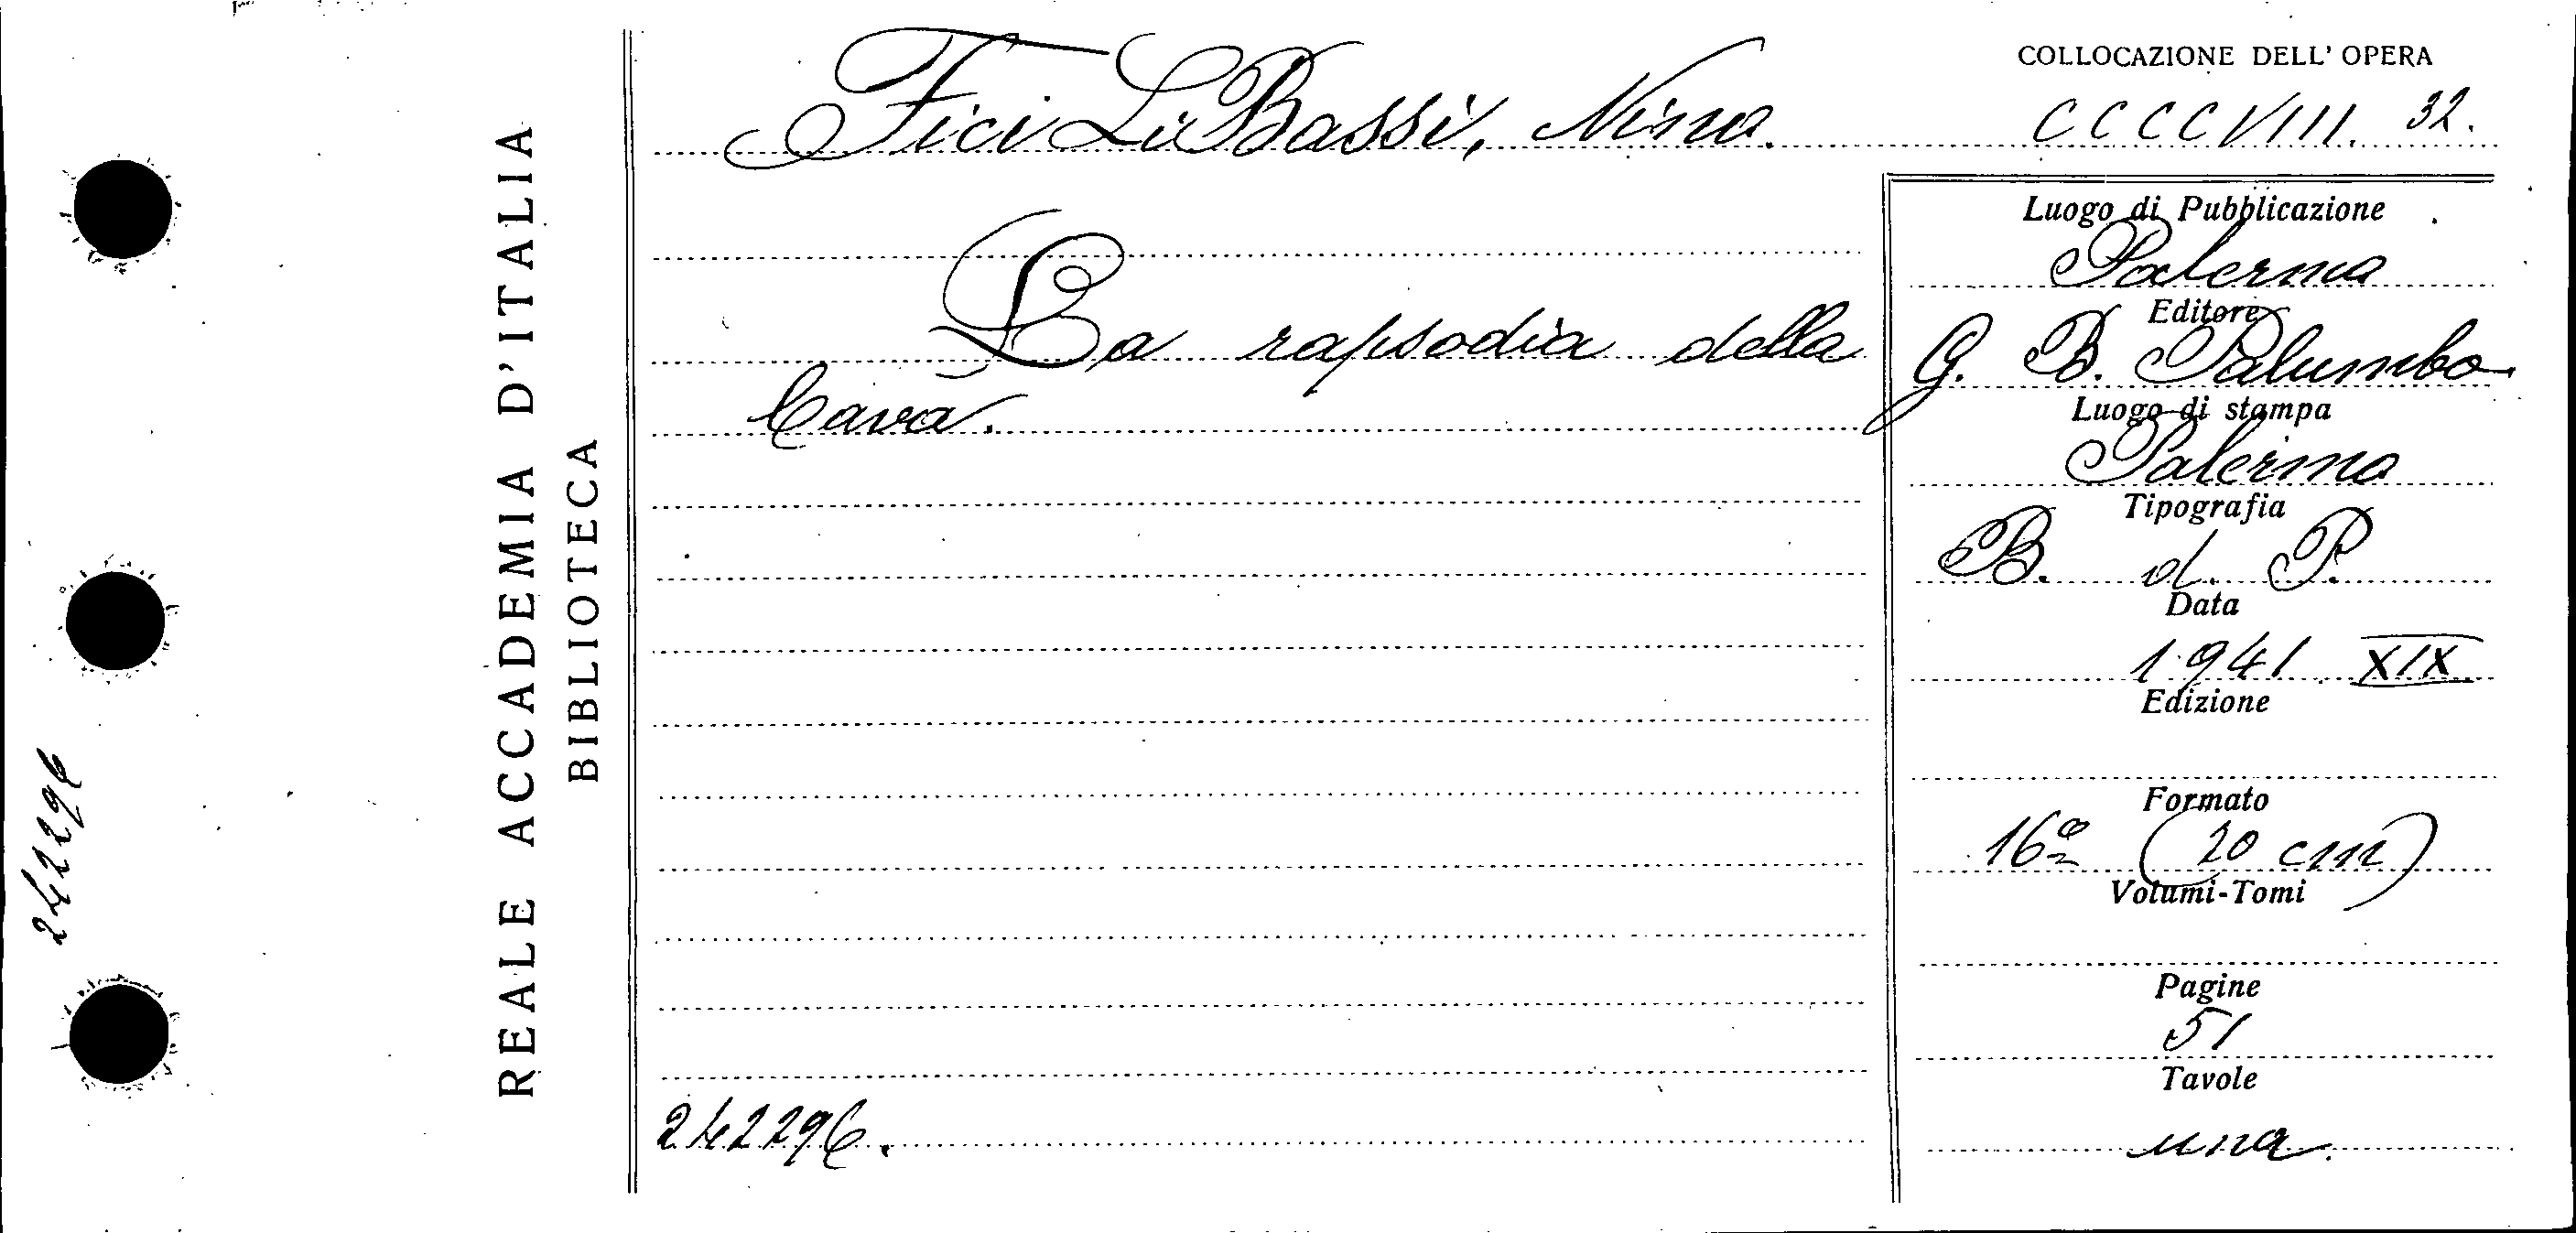 REALE ACCADEMIA D'ITALIA
BIBLIOTECA
242296
Fici Li Bassi, Nino.
La rapsodia della
Cava.
242296.
COLLOCAZIONE DELL' OPERA
CCCCVIII. 32.
Luogo di Pubblicazione
Palermo
Editore
G. B. Palumbo
Luogo di stampa
Palermo
Tipografia
B. d. P.
Data
1941 XIX
Edizione
Formato
16º (20 cm)
Volumi-Tomi
Pagine
51
Tavole
una.